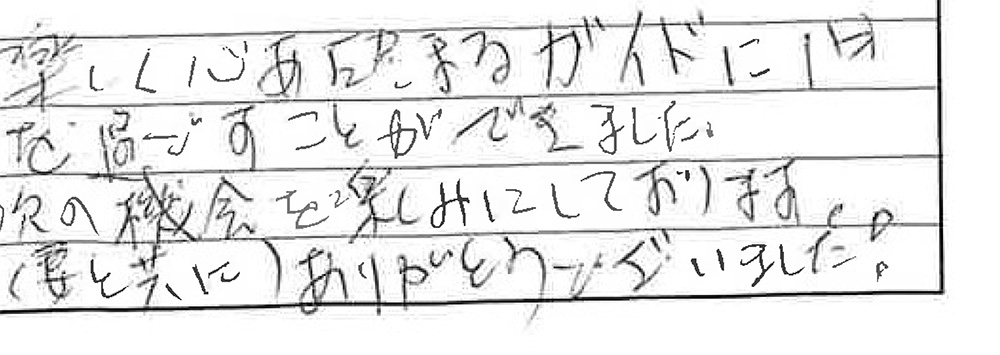 楽しく心あたたまるガイドに1日
を過ごすことができました。
次の機会を楽しみにしております。
(妻と共に)ありがとうございました!